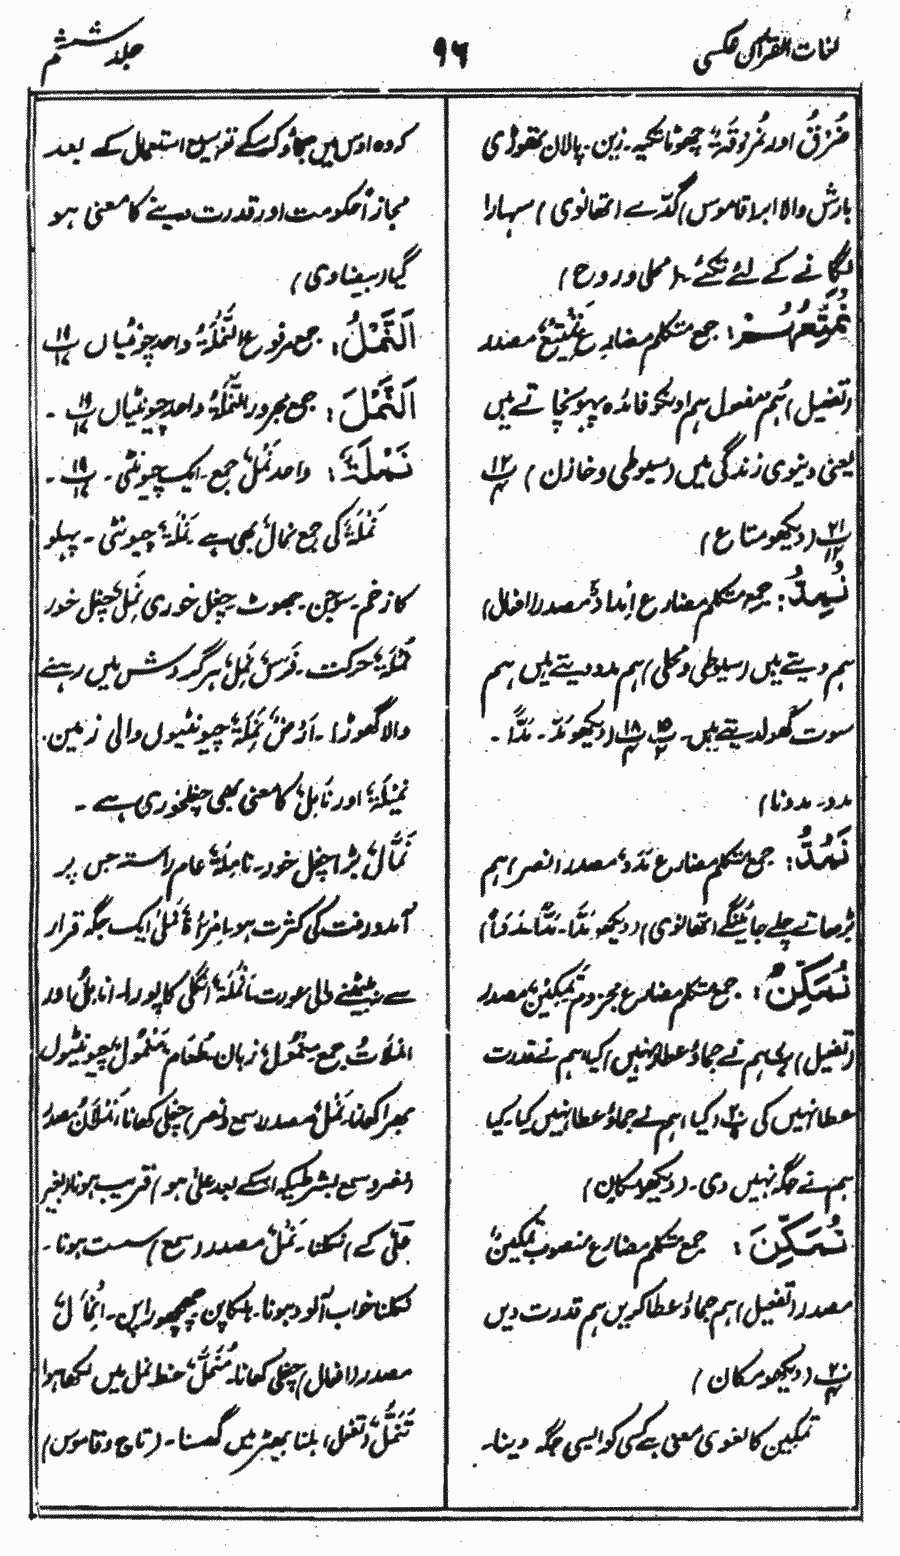 لغات القرآن عکسی
۹۶
جلد ششم
نُمْرُقُ اور نُمْرُقَۃٌ چھوٹا تکیہ۔ زین۔ پالان تھوڑی
بارش والا ابر (قاموس) گدّے (تھانوی) سہارا
لگانے کے لئے تکئے۔ (محلی و روح)
نُمَتِّعُهُمْ: جمع متکلم مضارع تَمْتِیْعٌ مصدر
(تفعیل) ہُم مفعول ہم ان کو فائدہ پہونچاتے ہیں
یعنی دنیوی زندگی میں (سیوطی و خازن) پ۱۲
پ۲۱ (دیکھو متاع)
نُمِدُّ: جمع متکلم مضارع اِمدادٌ مصدر (افعال)
ہم دیتے ہیں (سیوطی و محلی) ہم مدد دیتے ہیں ہم
سوت گھولدیتے ہیں۔ پ۱۵ پ۱۸ (دیکھو مَدَّ۔ مَدًّا۔
مدد۔ مددنا)
نَمُدُّ: جمع متکلم مضارع مَدٌّ مصدر (نصر) ہم
بڑھاتے چلے جائینگے (تھانوی) (دیکھو مَدَّا۔ مَدًّا مَدَدْنَا)
نُمَكِّنْ: جمع متکلم مضارع مجزوم تمکین مصدر
(تفعیل) ہم نے جماؤ عطا نہیں کیا، ہم نے قدرت
عطا نہیں کی پ۲۰ (کیا) ہم نے جماؤ عطا نہیں کیا۔ کیا
ہم نے جگہ نہیں دی۔ (دیکھو مکان)
نُمَكِّنَ: جمع متکلم مضارع منصوب تمکین
مصدر (تفعیل) ہم جماؤ عطا کریں ہم قدرت دیں
پ۲۰ (دیکھو مکان)
تمکین کا لغوی معنی ہے کسی کو ایسی جگہ دینا۔
کہ وہ اس میں جماؤ کر سکے توسیع استعمال کے بعد
مجازاً حکومت اور قدرت دینے کا معنی ہو
گیا (بیضاوی)
اَلنَّمْلُ: جمع مرفوع النَّمْلَۃُ واحد چونٹیاں پ۱۹
اَلنَّمْلِ: جمع مجرور النَّمْلَۃُ واحد چونٹیاں پ۱۹۔
نَمْلَةٌ: واحد نَمْلٌ جمع۔ ایک چونٹی۔ پ۱۹۔
نَمْلَۃٌ کی جمع نمال بھی ہے نَمْلَۃٌ چیونٹی۔ پہلو
کا زخم۔ سوجن۔ جھوٹ۔ چغل خوری نَمِلٌ چغل خور
نُمْلَۃٌ حرکت۔ فَرَسٌ نَمِلٌ ہر گردش میں رہنے
والا گھوڑا۔ اَرْضٌ نَمِلَۃٌ چیونٹیوں والی زمین۔
نَمِیْلَۃٌ اور نَامِلٌ کا معنی بھی چغلخوری ہے۔
نَمَّالٌ بڑا چغل خور۔ نامِلَۃٌ عام راستہ جس پر
آمدورفت کی کثرت ہو۔ اِمْرَأَۃٌ نَمْلٰی ایک جگہ قرار
سے نہ بیٹھنے والی عورت۔ اَنْمُلَۃٌ انگلی کا پورا۔ انامِلُ اور
انمُلَاتٌ جمع مَنْمُوْلٌ زبان۔ طَعَامٌ مَنْمُوْلٌ چیونٹیوں
بھرا کھانا۔ نَمْلٌ مصدر (سمع و نصر) چغلی کھانا۔ نَمْلَانٌ مصدر
(نصر و سمع بشرطیکہ اسکے بعد علیٰ ہو) قریب ہونا (بغیر
علیٰ کے) نکلنا۔ نَمْلٌ مصدر (سمع) سست ہونا۔
نکلنا خواب آلود ہونا۔ ہلکا پن۔ چھچھورا پن۔ اِنْمَالٌ
مصدر (افعال) چغلی کھانا۔ مُنَمَّلٌ خط نمل میں لکھا ہوا
تَنَمُّلٌ (تفعل) ہلنا بھیڑ میں گھسنا۔ (تاج و قاموس)